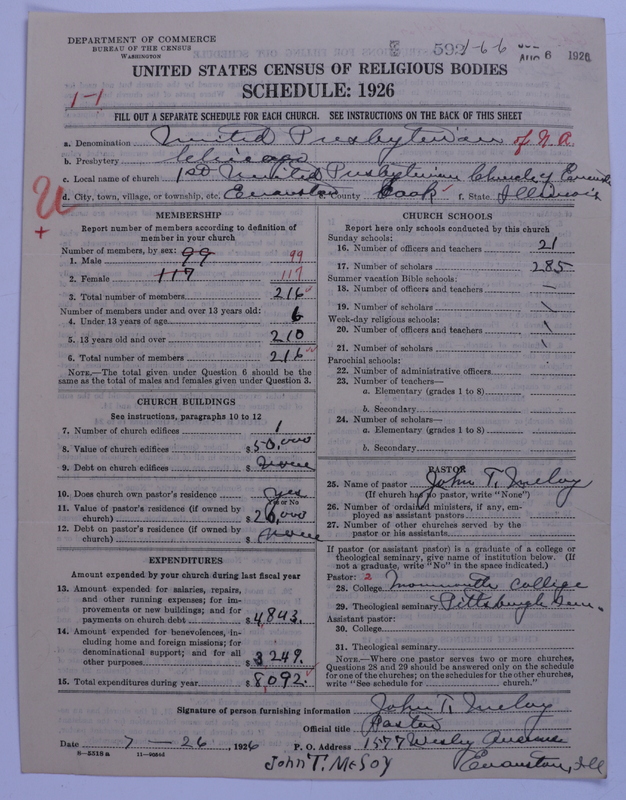 DEPARTMENT OF COMMERCE
BUREAU OF THE CENSUS
WASHINGTON
592 1-6-6
AUG 6 1926
UNITED STATES CENSUS OF RELIGIOUS BODIES
SCHEDULE: 1926
1-1
FILL OUT A SEPARATE SCHEDULE FOR EACH CHURCH. SEE INSTRUCTIONS ON THE BACK OF THIS SHEET
a. Denomination United Presbyterian of N.A.
b. Presbytery Chicago
c. Local name of church 1st United Presbyterian Church of Evanston
d. City, town, village, or township, etc. Evanston County Cook f. State Illinois
U
+
MEMBERSHIP
Report number of members according to definition of member in your church
Number of members, by sex:
1. Male 99 99
2. Female 117 117
3. Total number of members 216
Number of members under and over 13 years old:
4. Under 13 years of age 6
5. 13 years old and over 210
6. Total number of members 216
NOTE.—The total given under Question 6 should be the same as the total of males and females given under Question 3.
CHURCH BUILDINGS
See instructions, paragraphs 10 to 12
7. Number of church edifices 1
8. Value of church edifices $ 50,000
9. Debt on church edifices $ None
10. Does church own pastor's residence Yes
Yes or No
11. Value of pastor's residence (if owned by church) $ 20,000
12. Debt on pastor's residence (if owned by church) $ None
EXPENDITURES
Amount expended by your church during last fiscal year
13. Amount expended for salaries, repairs, and other running expenses; for improvements or new buildings; and for payments on church debt $ 4843.
14. Amount expended for benevolences, including home and foreign missions; for denominational support; and for all other purposes $ 3249.
15. Total expenditures during year $ 8092.
CHURCH SCHOOLS
Report here only schools conducted by this church
Sunday schools:
16. Number of officers and teachers 21
17. Number of scholars 285
Summer vacation Bible schools:
18. Number of officers and teachers —
19. Number of scholars
Week-day religious schools:
20. Number of officers and teachers
21. Number of scholars
Parochial schools:
22. Number of administrative officers
23. Number of teachers—
a. Elementary (grades 1 to 8)
b. Secondary
24. Number of scholars—
a. Elementary (grades 1 to 8)
b. Secondary
PASTOR
25. Name of pastor John T. McCloy
(If church has no pastor, write "None")
26. Number of ordained ministers, if any, employed as assistant pastors
27. Number of other churches served by the pastor or his assistants
If pastor (or assistant pastor) is a graduate of a college or theological seminary, give name of institution below. (If not a graduate, write "No" in the space indicated.)
Pastor: 2
28. College Monmouth College
29. Theological seminary Pittsburgh Sem.
Assistant pastor:
30. College
31. Theological seminary
NOTE.—Where one pastor serves two or more churches, Questions 28 and 29 should be answered only on the schedule for one of the churches; on the schedules for the other churches, write "See schedule for church."
Signature of person furnishing information John T. McCloy
Official title Pastor
Date 7-26, 1926 P. O. Address 1577 Wesley Avenue
8-5318 a
Evanston, Ill
John T. McCoy